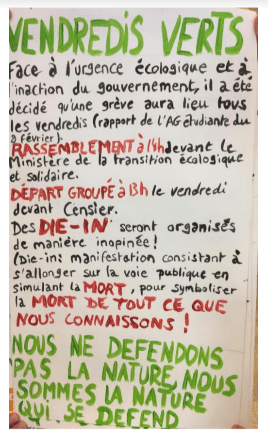 VENDREDIS VERTS
Face à l'urgence écologique et à
l'inaction du gouvernement, il a été
décidé qu'une grève aura lieu tous
les vendredis (rapport de l'AG étudiante du
8 février).
RASSEMBLEMENT à 14h devant le
Ministère de la transition écologique
et solidaire.
DÉPART GROUPÉ à 13h le vendredi
devant Censier.
Des DIE-IN seront organisés
de manière inopinée !
(Die-in: manifestation consistant à
s'allonger sur la voie publique en
simulant la MORT, pour symboliser
la MORT DE TOUT CE QUE
NOUS CONNAISSONS !
NOUS NE DEFENDONS
PAS LA NATURE, NOUS
SOMMES LA NATURE
QUI SE DEFEND